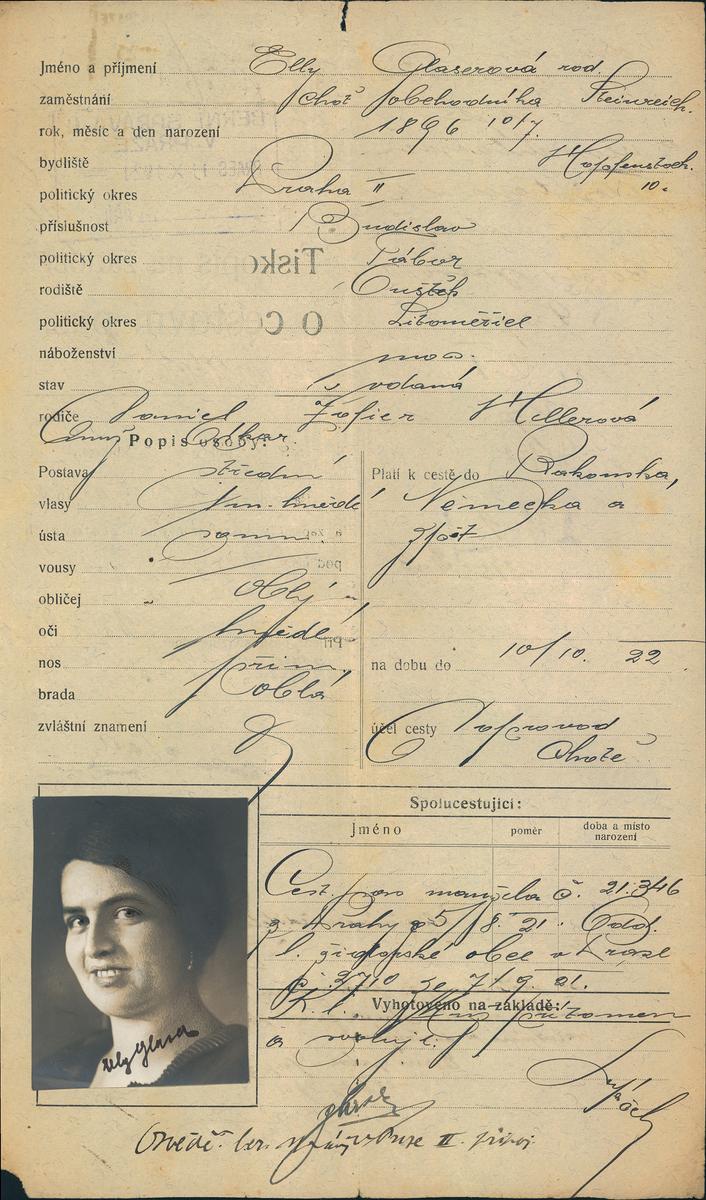 Jméno a příjmení Elly Glaserová rod.
zaměstnání choť obchodníka Steinreich.
rok, měsíc a den narození 1896 10/7.
bydliště Hopfenstock.
politický okres Praha II 10.
příslušnost Budislav
politický okres Tábor
rodiště Ouštěk
politický okres Litoměřice
náboženství mos.
stav vdaná
rodiče Daniel Žofie r. Hellerová
manž. Oskar.
Popis osoby:
Postava střední
vlasy tm. hnědé
ústa norm.
vousy
obličej oblý
oči hnědé
nos přim.
brada oblá
zvláštní znamení
Platí k cestě do Rakouska,
Německa a
zpět
na dobu do 10/10. 22
účel cesty Doprovod
chotě
Spolucestující:
Jméno poměr doba a místo narození
Cest. pas manžela č. 21.346
z Prahy z 5/8. 21. Odd.
l. židovské obce v Praze
čj. 2710 ze 7/9. 21.
Vyhotoveno na základě:
a
Elly Glaser
II.